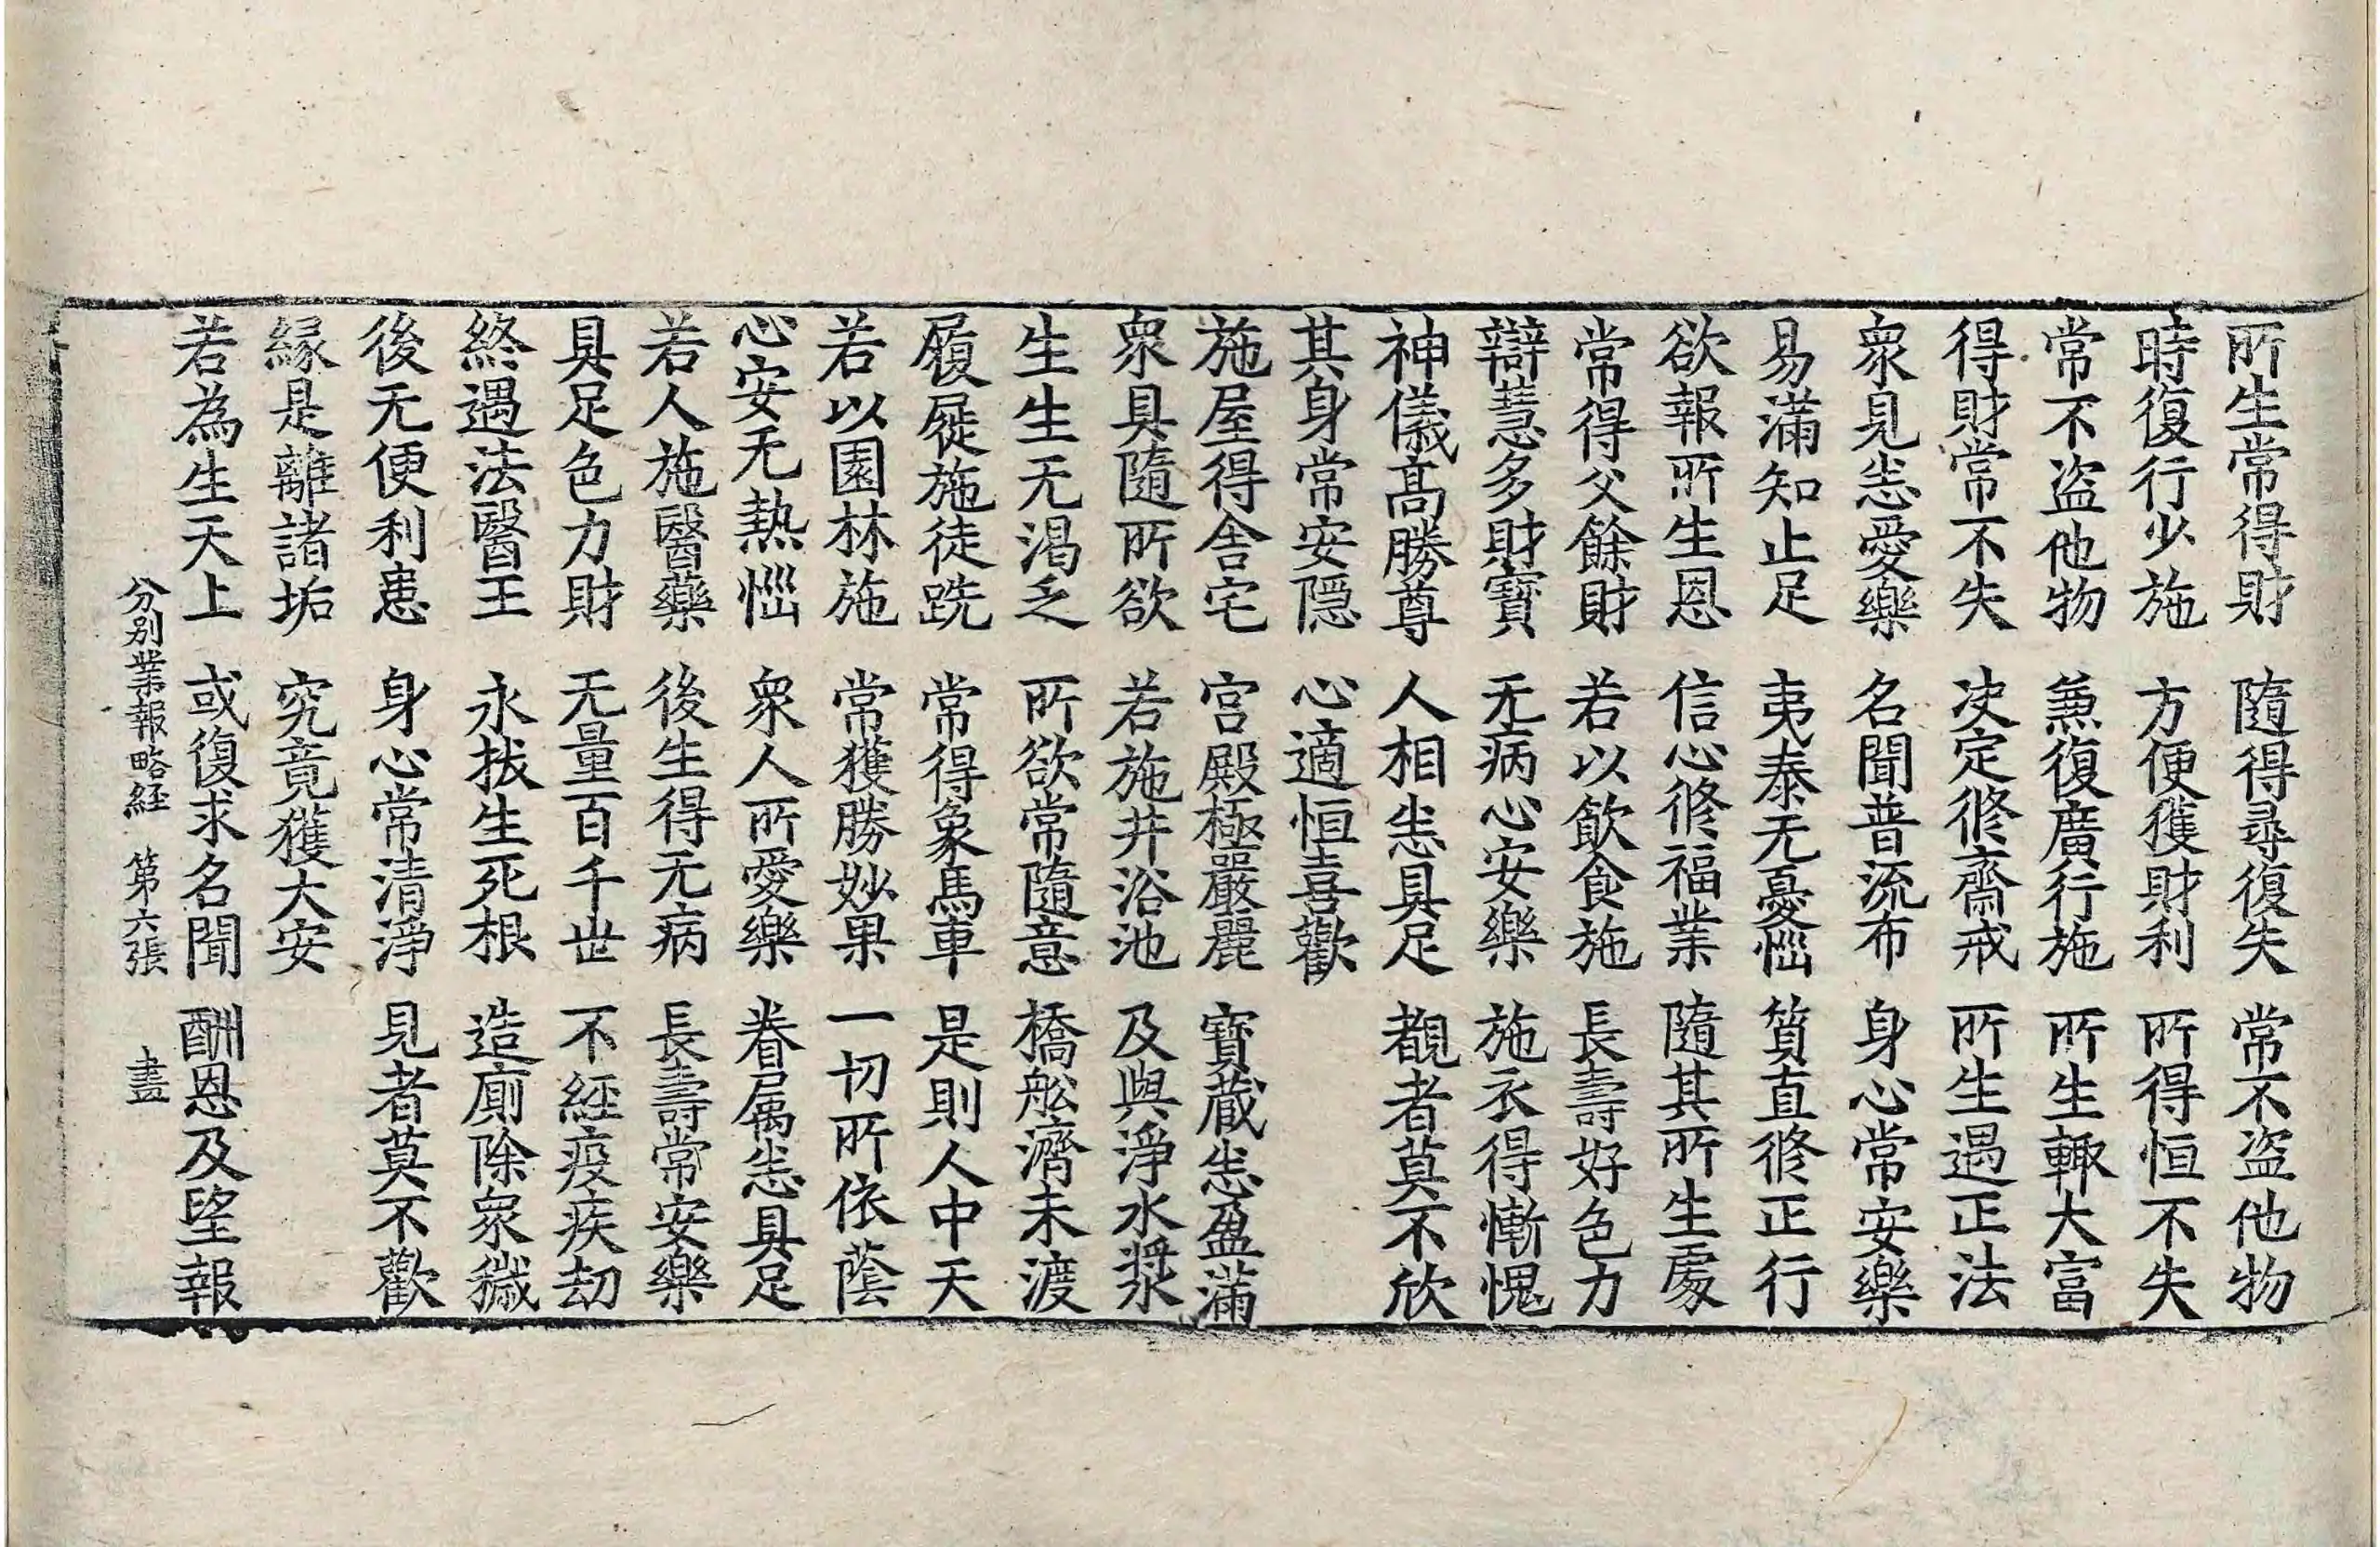 所生常得財　隨得尋復失　常不盗他物
時復行少施　方便獲財利　所得恒不失
常不盗他物　兼復廣行施　所生輙大富
得財常不失　決定修齋戒　所生遇正法
衆見恙愛樂　名聞普流布　身心常安樂
易滿知止足　夷泰无憂惱　質直修正行
欲報所生恩　信心修福業　隨其所生處
常得父餘財　若以飲食施　長壽好色力
辯慧多財寶　无病心安樂　施衣得慚愧
神儀髙勝尊　人相恙具足　覩者莫不欣
其身常安隠　心適恒喜歡
施屋得舍宅　宫殿極嚴麗　寶蔵恙盈滿
衆具隨所欲　若施井浴池　及與淨水漿
生生无渇乏　所欲常隨意　橋舩濟未渡
履屣施徒跣　常得象馬車　是則人中天
若以園林施　常獲勝妙果　一切所依蔭
心安无熱惱　衆人所愛樂　眷属恙具足
若人施醫藥　後生得无病　長壽常安樂
具足色力財　无量百千世　不経疫疾劫
終遇法醫王　永拔生死根　造廁除衆穢
後无便利患　身心常清淨　見者莫不歡
縁是離諸垢　究竟獲大安
若為生天上　或復求名聞　酬恩及望報
分別業報略経　第六張　盡